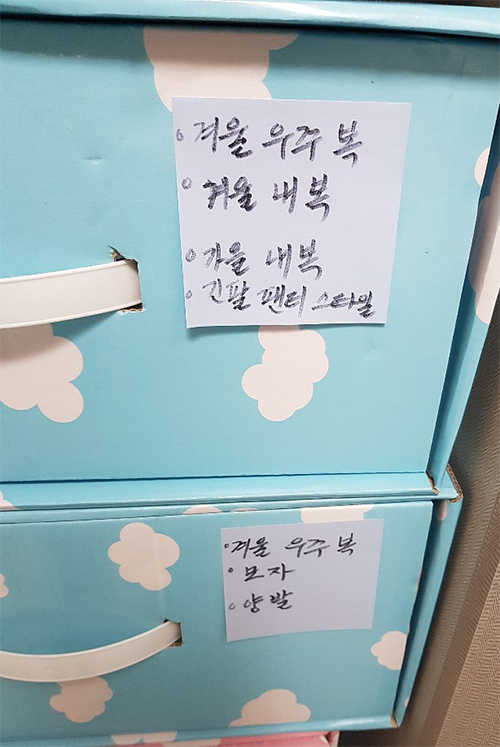 ◦ 겨울 우주 복
◦ 겨울 내복
◦ 가을 내복
◦ 긴팔 팬티 스타일
◦ 겨울 우주 복
◦ 모자
◦ 양말